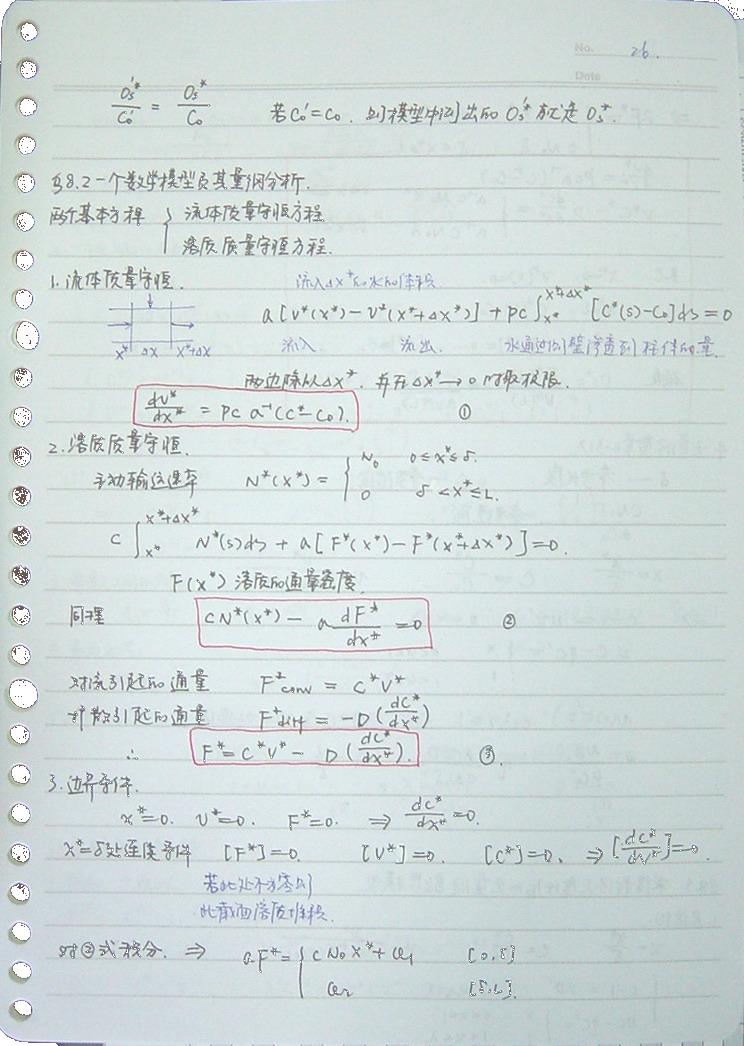 No. 26.
Date
Os'*/C0' = Os*/C0 若C0'=C0, 则模型中测出的Os'*就是Os*.
§8.2一个数学模型及其量纲分析.
两个基本方程 { 流体质量守恒方程
溶质质量守恒方程.
1. 流体质量守恒. 流入Δx*的水的体积
a[v*(x*)-v*(x*+Δx*)]+pc∫_{x*}^{x*+Δx*}[C*(s)-C0]ds=0
x* Δx x*+Δx 流入. 流出. 水通过侧壁渗透到柱体的量.
两边除以Δx*, 并在Δx*→0时取极限.
dv*/dx* = pc a⁻¹(C*-C0). ①
2. 溶质质量守恒.
主动输运速率 N*(x*) = { N0 0≤x*≤δ.
0 δ<x*≤L.
C∫_{x*}^{x*+Δx*} N*(s)ds + a[F*(x*)-F*(x*+Δx*)]=0.
F(x*) 溶质的通量密度.
同理 cN*(x*) - a dF*/dx* = 0 ②
对流引起的通量 F*conv = C*V*
扩散引起的通量 F*diff = -D(dC*/dx*)
∴ F*=C*V* - D(dC*/dx*). ③.
3. 边界条件.
x*=0. v*=0. F*=0. ⇒ dC*/dx*=0.
x*=δ处连续条件 [F*]=0. [V*]=0. [C*]=0. ⇒[dC*/dx*]=0.
若此处不为零则
此截面溶质堆积.
对②式积分. ⇒ aF*={ cN0x*+α1 [0,δ]
α2 [δ,L].